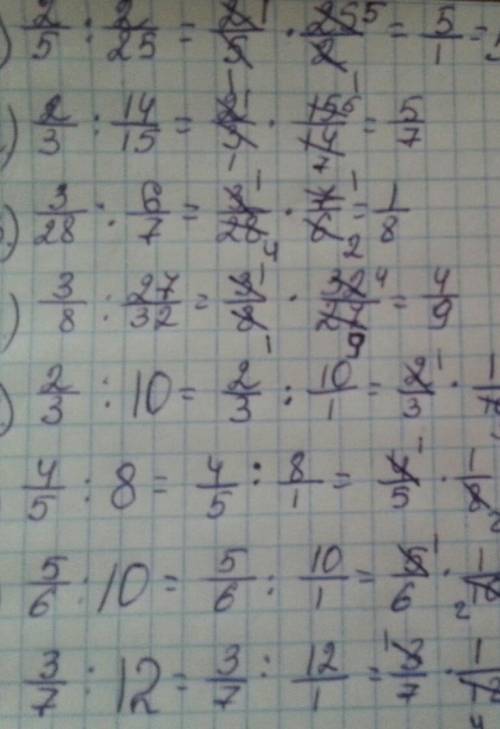 ) 2/5 : 2/25 = 2 1/5 · 25 5/2 1 = 5/1 = 5
) 2/3 : 14/15 = 2 1/3 1 · 15 5/14 7 = 5/7
) 3/28 : 6/7 = 3 1/28 4 · 7 1/6 2 = 1/8
) 3/8 : 27/32 = 3 1/8 1 · 32 4/27 9 = 4/9
) 2/3 : 10 = 2/3 : 10/1 = 2 1/3 · 1/10
4/5 : 8 = 4/5 : 8/1 = 4 1/5 · 1/8 2
5/6 : 10 = 5/6 : 10/1 = 5 1/6 · 1/10 2
3/7 : 12 = 3/7 : 12/1 = 3 1/7 · 1/12 4